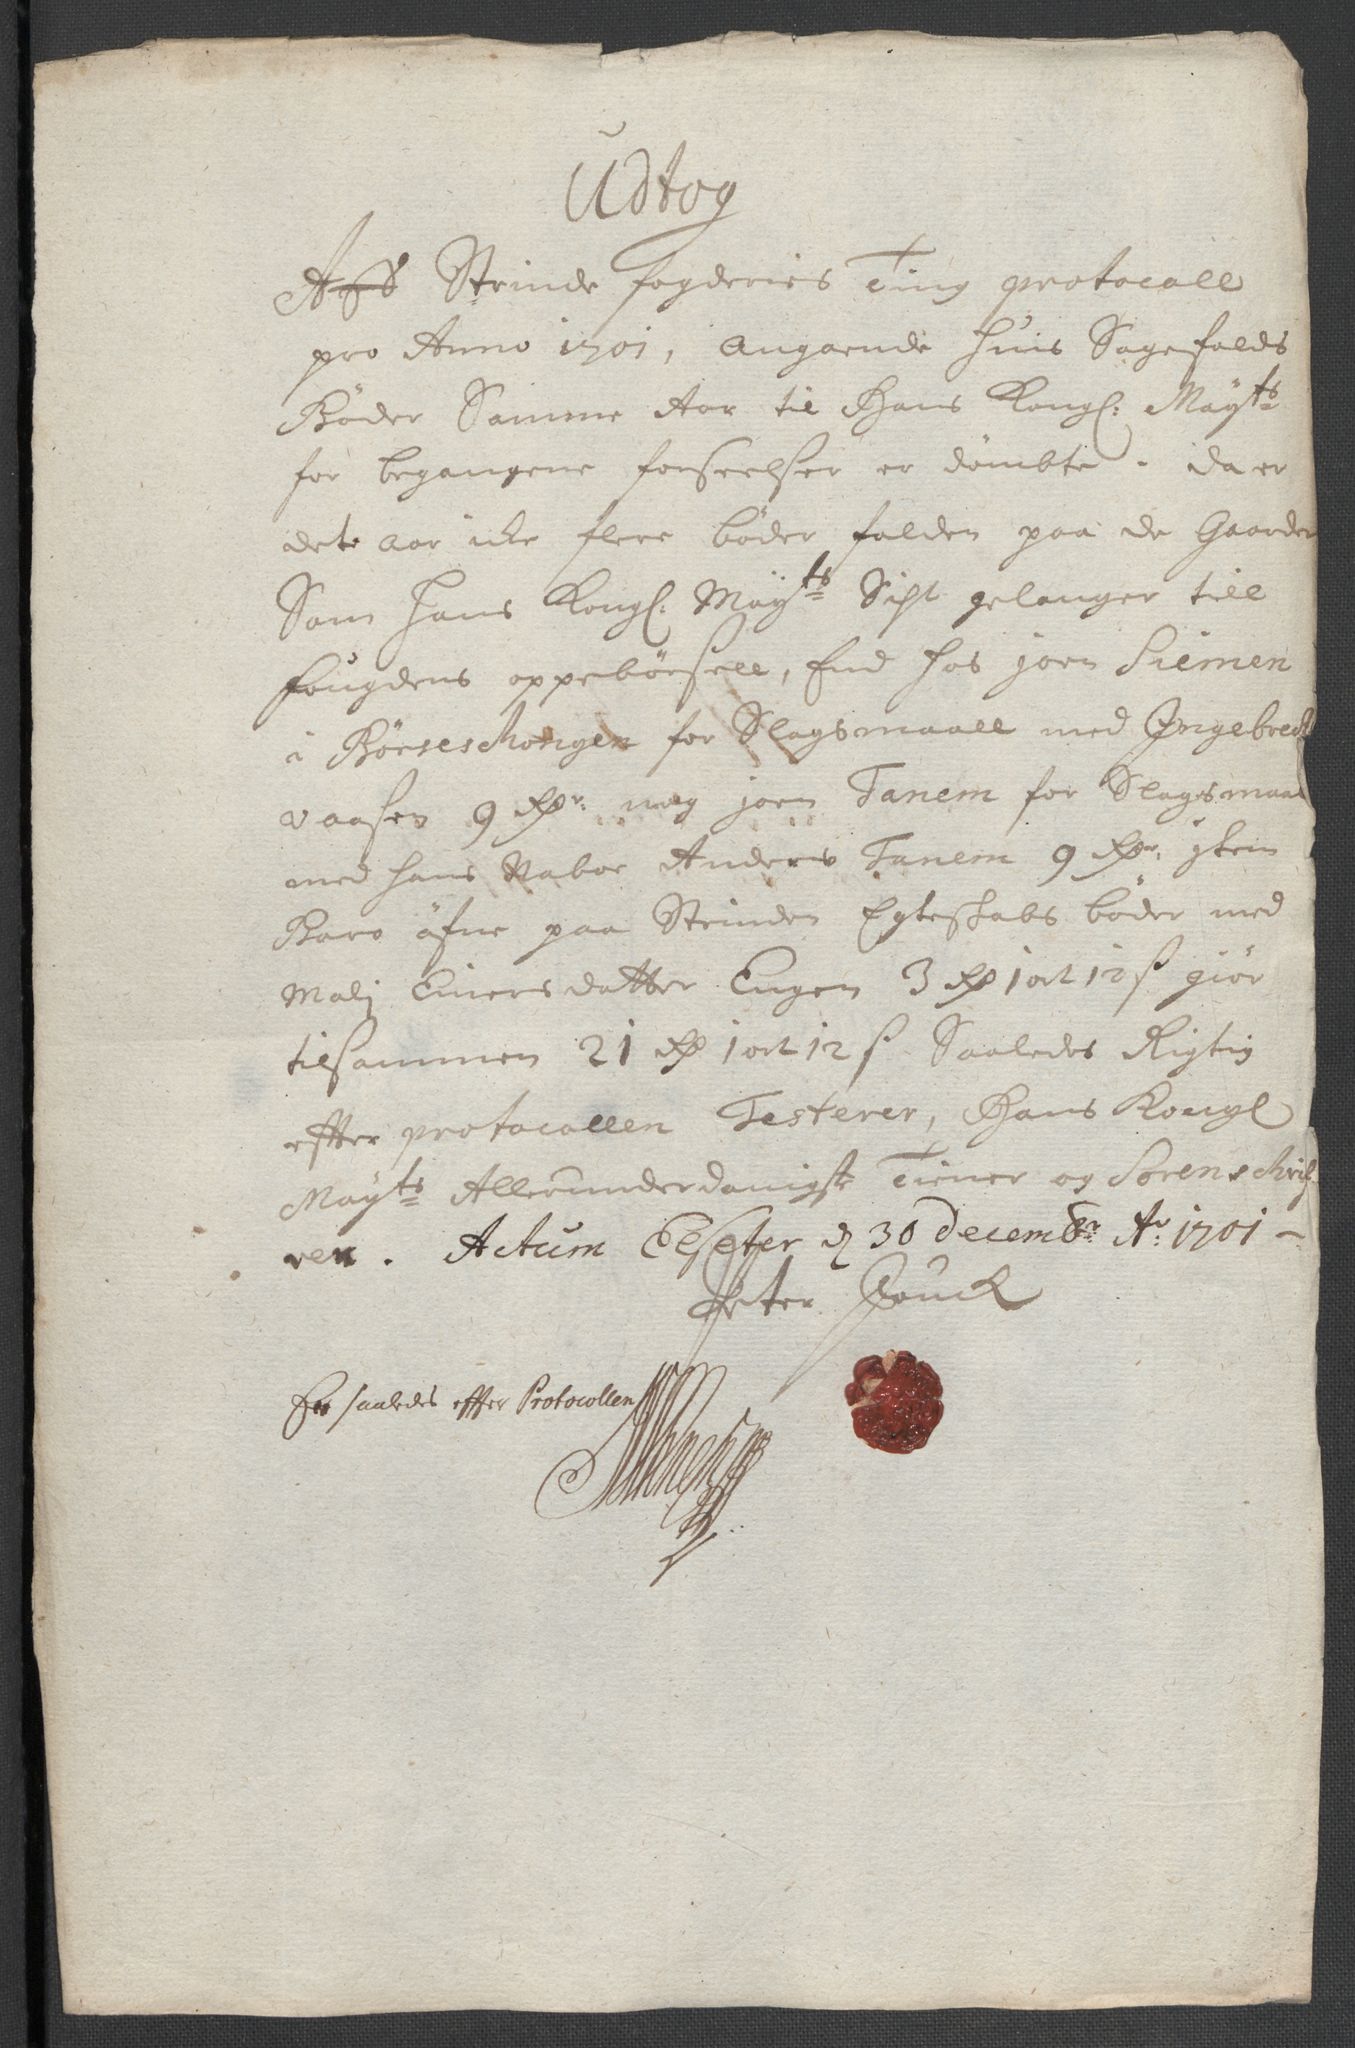 Udtog
Aff Strinde fogderies Ting protocoll
pro Anno 1701, angaaende huis Sagefalds
Bøder Samme Aar til Hans Kongl: Mayts
for begangene forseelser er dømbte . da er
dete aar icke flere bøder falden paa de Gaarder
Som hans Kongl: Mayts Sigt gelanger till
fougdens oppebørsell, End hos joen Siemen
i Børseschongen for Slagsmaall med Jngebrecht
vaasen 9 Rdr. nog joen Tanem for Slagsmaal
med hans Naboe Anders Tanem 9 Rdr. jtem
Baro øfne paa Strinden Egteskabs bøder med
Malj Einersdatter Eugen 3 Rd 1 ort 12 s giør
tilsammen 21 Rd 1 ort 12 s Saaledes Rigtig
effter protocollen Testerer, Hans Kongl
Mayts Allerunderdanigste Tiener og Sorenschrif
ver. Actum Elseter d 30 Decembr Ao 1701 -
Peter
Er saaledes effter Protocollen